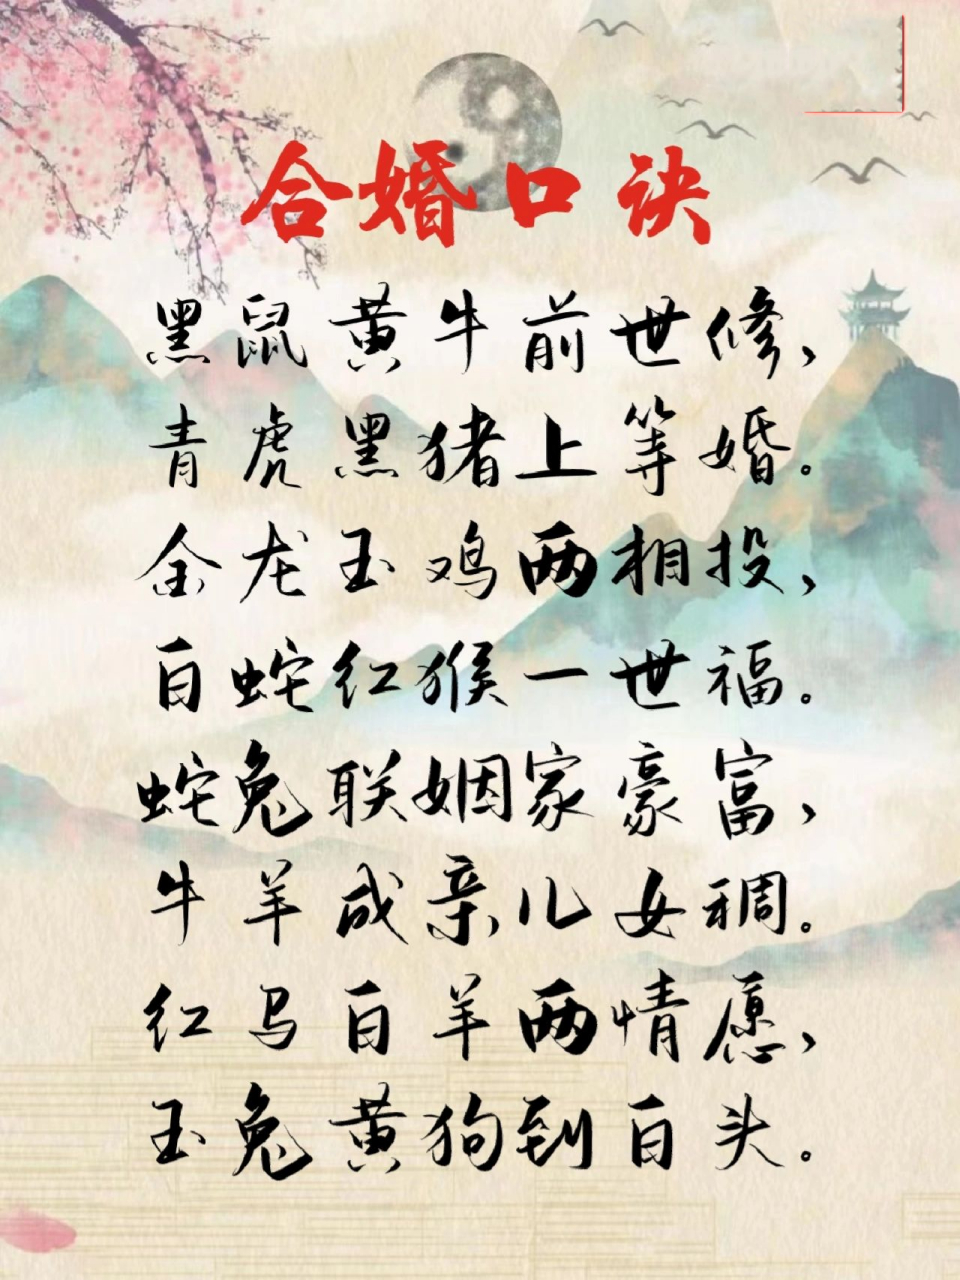 合婚口诀
黑鼠黄牛前世修，
青虎黑猪上等婚。
金龙玉鸡两相投，
白蛇红猴一世福。
蛇兔联姻家豪富，
牛羊成亲儿女稠。
红马百羊两情愿，
玉兔黄狗到白头。